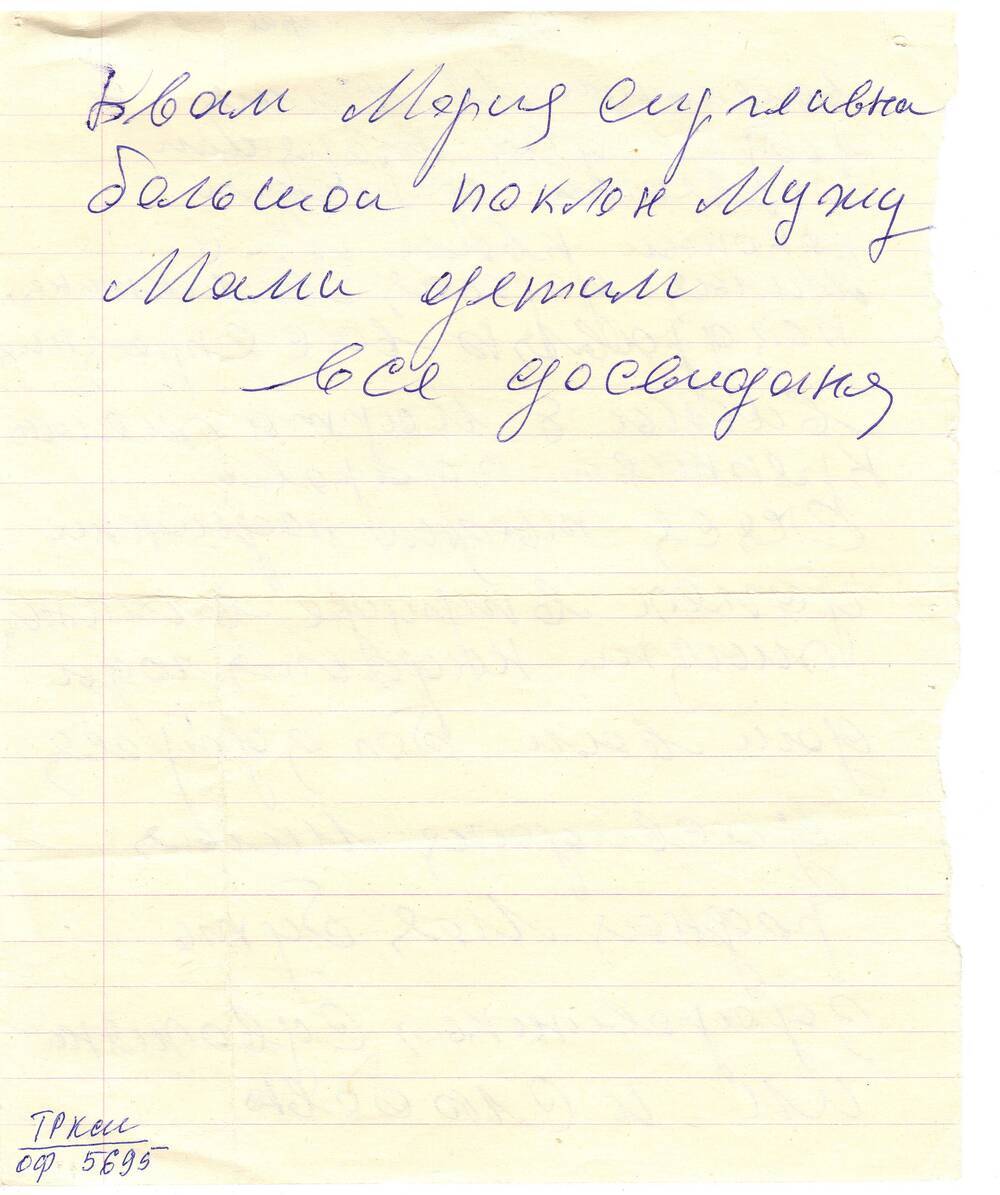 Квам Мария Сирглавна
большои поклон Мужу
Мами детим
вся досвиданя
ТРКМ
ОФ 5695